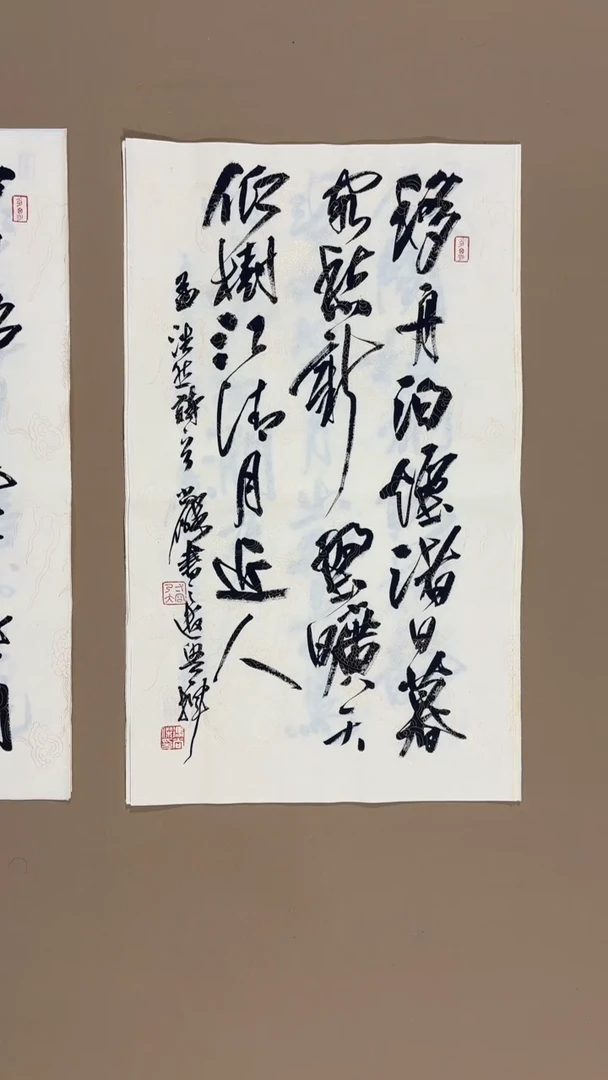 移舟泊煙渚日暮
客愁新野曠天
低樹江清月近人
孟浩然詩 書